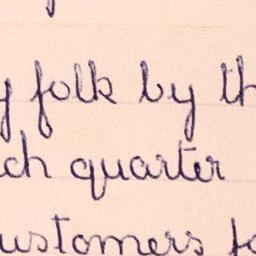 y folk by th
ch quarter
ustomers fo